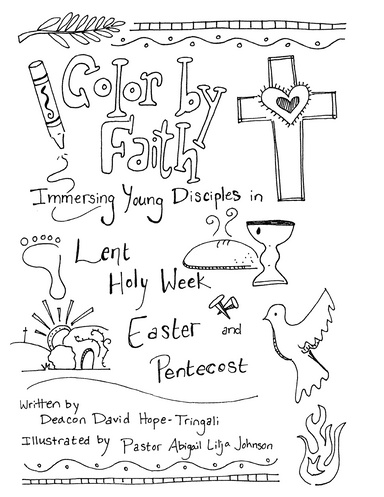 Color by
Faith
Immersing Young Disciples in
Lent
Holy Week
Easter and
Pentecost
Written by
Deacon David Hope-Tringali
Illustrated by Pastor Abigail Lilja Johnson